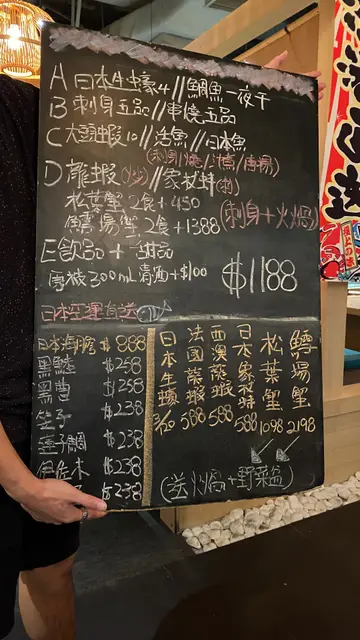 A 日本生蠔4//鯛魚一夜干
B 刺身五品//串燒五品
C 大頭蝦10//活魚//日本魚
(刺身/燒/烤/清湯)
D 龍蝦(炒)//象拔蚌(刺)
松葉蟹2食+450
鱈場蟹2食+1388 (刺身+火鍋)
E 飲品+甜品
300mL清酒+$100
$1188
日本空運直送
日本海膽$888
黑鯥$258
黑曹$258
笠子$238
$238
伊佐木$238
$238
日本生蠔 3/20
法國龍蝦 588
西澳龍蝦 588
日本象拔蚌 588
松葉蟹 1098
鱈場蟹 2198
(送火鍋+野菜盛)